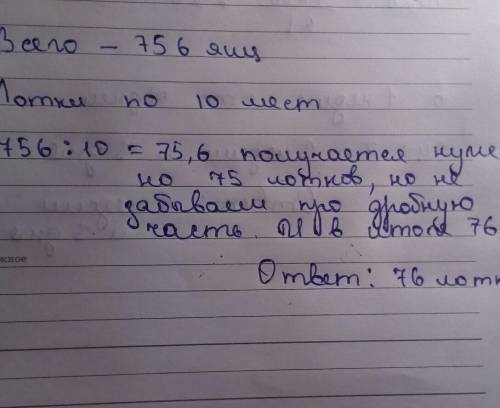 Всего – 756 яиц
Лотки по 10 мест
756 : 10 = 75,6 получается нуж
но 75 лотков, но не
забываем про дробную
часть. И в итоге 76
жное
Ответ: 76 лотк